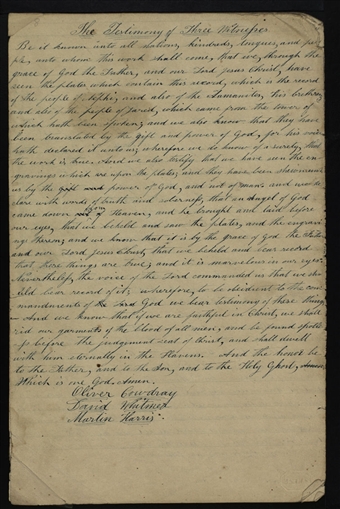 The Testimony of Three Witnesses
Be it known unto all nations, kindreds, tongues, and peo-
ple, unto whom this work shall come, that we, through the
grace of God the Father, and our Lord Jesus Christ, have
seen the plates which contain this record, which is a record
of the people of Nephi, and also of the Lamanites, his brethren,
and also of the people of Jared, which came from the tower of
which hath been spoken; and we also know that they have
been translated by the gift and power of God, for his voice
hath declared it unto us; wherefore we do know of a surety, that
the work is true. And we also testify that we have seen the en-
gravings which are upon the plates; and they have been shewn unto
us by the power of God, and not of man. and we de-
clare with words of truth and soberness, that an Angel of God
came down from Heaven, and he brought and laid before
our eyes, that we beheld and saw the plates, and the engrav-
ings thereon; and we know that it is by the grace of God the Father
and our Lord Jesus Christ, that we beheld and bear record
that these things are true; and it is marvelous in our eyes:
Nevertheless, the voice of the Lord commanded us that we sho-
uld bear record of it; wherefore, to be obedient to the com-
mandments of the Lord God we bear testimony of these things
And we know that if we are faithful in Christ, we shall
rid our garments of the blood of all men, and be found spotle-
ss before the judgement seat of Christ, and shall dwell
with him eternally in the Heavens. And the honor be
to the Father, and to the Son, and to the Holy Ghost,
Which is one God, Amen.
Oliver Cowdray
David Whitmer
Martin Harris